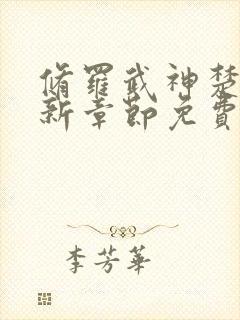 脩羅武神楚
新章節免費
李芳華